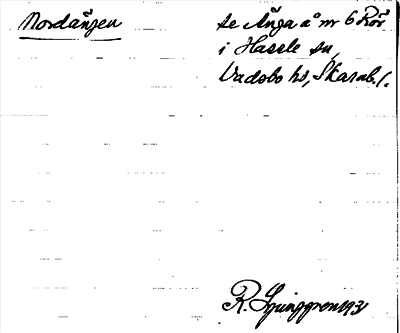 Nordängen
se Änga å nr 6 Rör
i Hassle sn,
Vadsbo hd, Skarab. l.
R. Ljunggren 1931